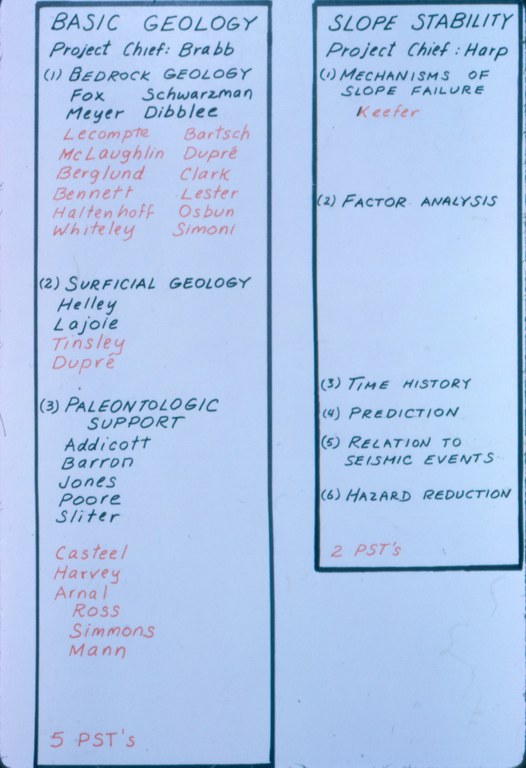 BASIC GEOLOGY
Project Chief: Brabb
(1) BEDROCK GEOLOGY
Fox Schwarzman
Meyer Dibblee
Lecompte Bartsch
McLaughlin Dupré
Berglund Clark
Bennett Lester
Haltenhoff Osbun
Whiteley Simoni
(2) SURFICIAL GEOLOGY
Helley
Lajoie
Tinsley
Dupré
(3) PALEONTOLOGIC
SUPPORT
Addicott
Barron
Jones
Poore
Sliter
Casteel
Harvey
Arnal
Ross
Simmons
Mann
5 PST's
SLOPE STABILITY
Project Chief: Harp
(1) MECHANISMS OF
SLOPE FAILURE
Keefer
(2) FACTOR ANALYSIS
(3) TIME HISTORY
(4) PREDICTION
(5) RELATION TO
SEISMIC EVENTS
(6) HAZARD REDUCTION
2 PST's